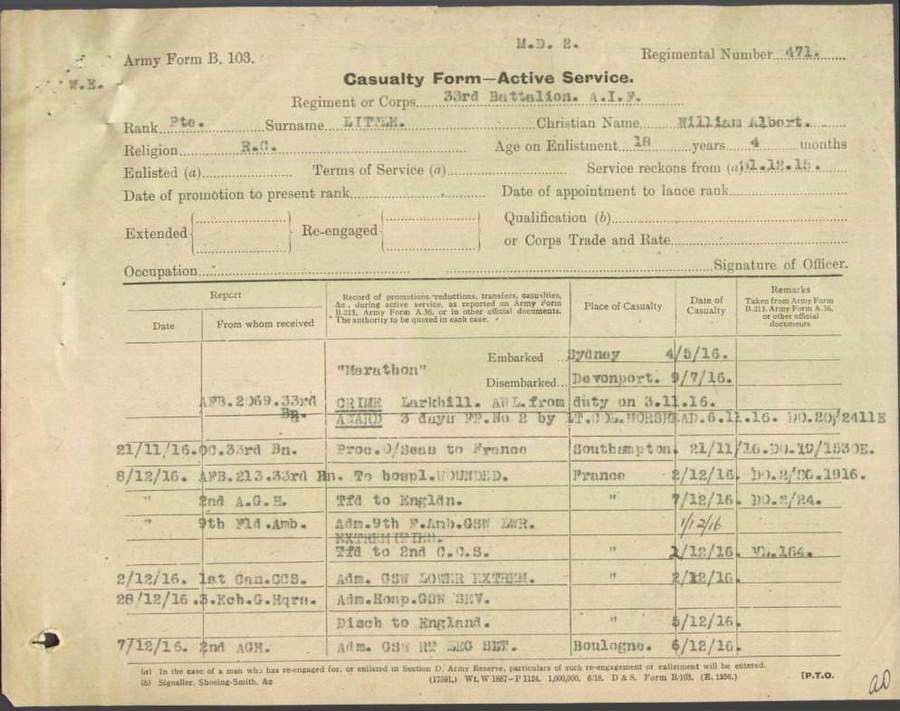 M.D. 2.
Army Form B. 103.
Regimental Number 471.
W.E.
Casualty Form—Active Service.
Regiment or Corps 33rd Battalion. A.I.F.
Rank Pte. Surname LITTLE. Christian Name William Albert.
Religion R.C. Age on Enlistment 18 years 4 months
Enlisted (a) Terms of Service (a) Service reckons from (a) .12.15.
Date of promotion to present rank Date of appointment to lance rank
Extended Re-engaged Qualification (b)
or Corps Trade and Rate
Occupation Signature of Officer.
Report
Date
From whom received
Record of promotions, reductions, transfers, casualties, &c., during active service, as reported on Army Form B.213, Army Form A.36, or in other official documents. The authority to be quoted in each case.
Place of Casualty
Date of Casualty
Remarks
Taken from Army Form B.213, Army Form A.36, or other official documents
Embarked Sydney 4/5/16.
"Marathon"
Disembarked Devonport. 9/7/16.
AFB.2069.33rd Bn. CRIME Larkhill. AWL.from duty on 3.11.16.
AWARD 3 days FP.No 2 by LT.COL.MORSHEAD.6.11.16. DO.20/2411E
21/11/16. OC.33rd Bn. Proc.O/Seas to France Southampton. 21/11/16.DO.19/1530E.
8/12/16. AFB.213.33rd Bn. To hospl.WOUNDED. France 2/12/16. .1916.
" 2nd A.G.H. Tfd to Engldn. " 7/12/16. DO.2/24.
" 9th Fld.Amb. Adm.9th F.Amb.GSW LWR. 1/12/16
EXTREMITIES.
Tfd to 2nd C.C.S. " /12/16. 164.
2/12/16. 1st Can.CCS. Adm. GSW LOWER EXTREM. " 2/12/16.
28/12/16. 3.Ech.G.Hqrs. Adm.Hosp.GSW SEV.
Disch to England. " 6/12/16.
7/12/16. 2nd AGH. Adm. GSW RT LEG SLT. Boulogne. 6/12/16.
(a) In the case of a man who has re-engaged for, or enlisted in Section D, Army Reserve, particulars of such re-engagement or enlistment will be entered.
(b) Signaller, Shoeing-Smith, &c (17591.) Wt. W 1887—P 1124. 1,000,000. 6/18. D & S. Form B/103. (E. 1256.) [P.T.O.